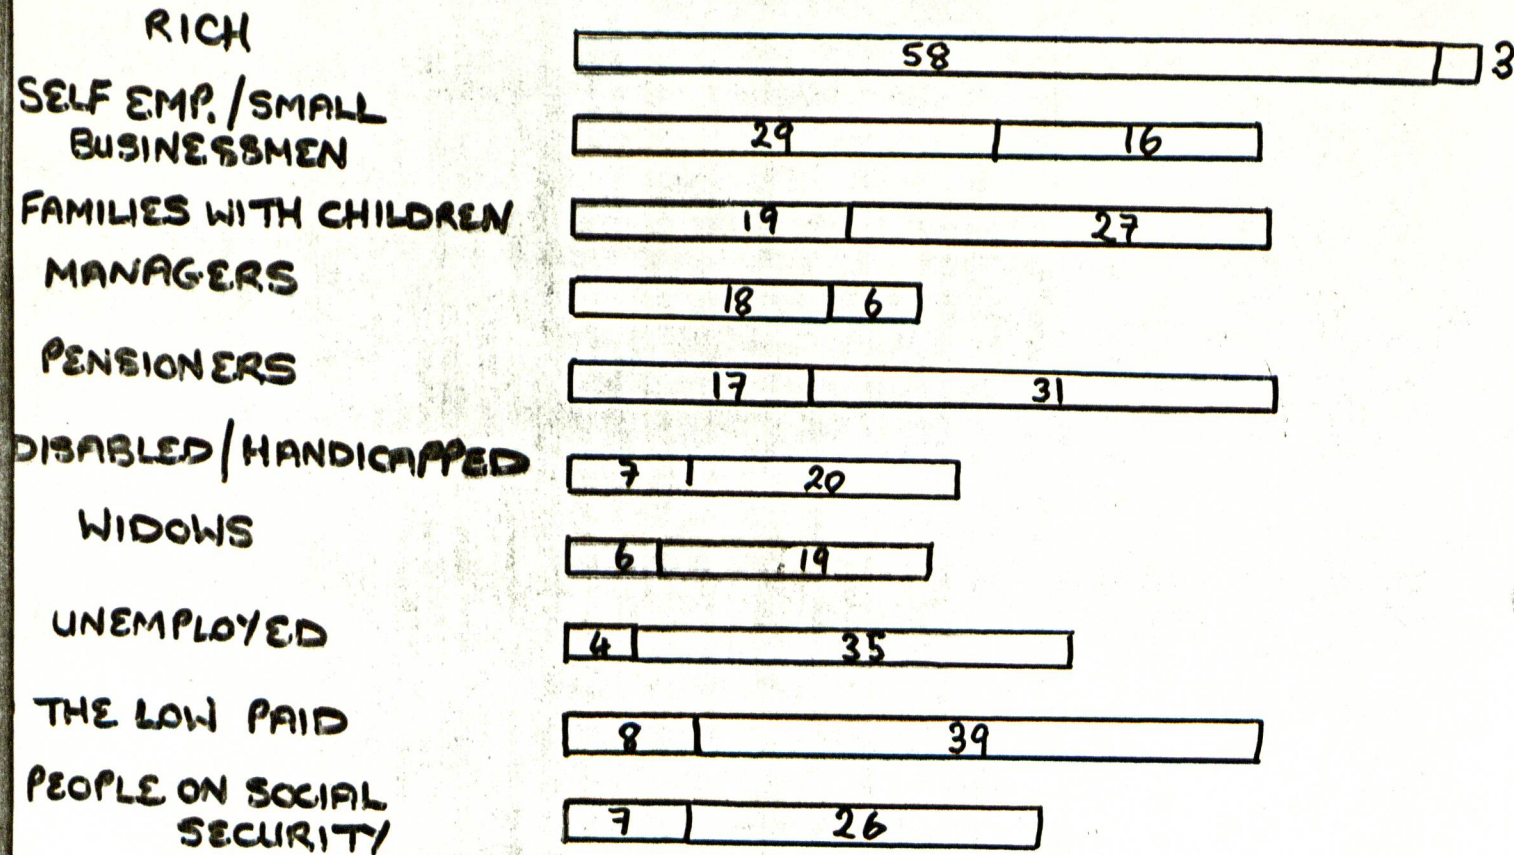 RICH
58 3
SELF EMP./SMALL
BUSINESSMEN
29 16
FAMILIES WITH CHILDREN
19 27
MANAGERS
18 6
PENSIONERS
17 31
DISABLED/HANDICAPPED
7 20
WIDOWS
6 19
UNEMPLOYED
4 35
THE LOW PAID
8 39
PEOPLE ON SOCIAL
SECURITY
7 26